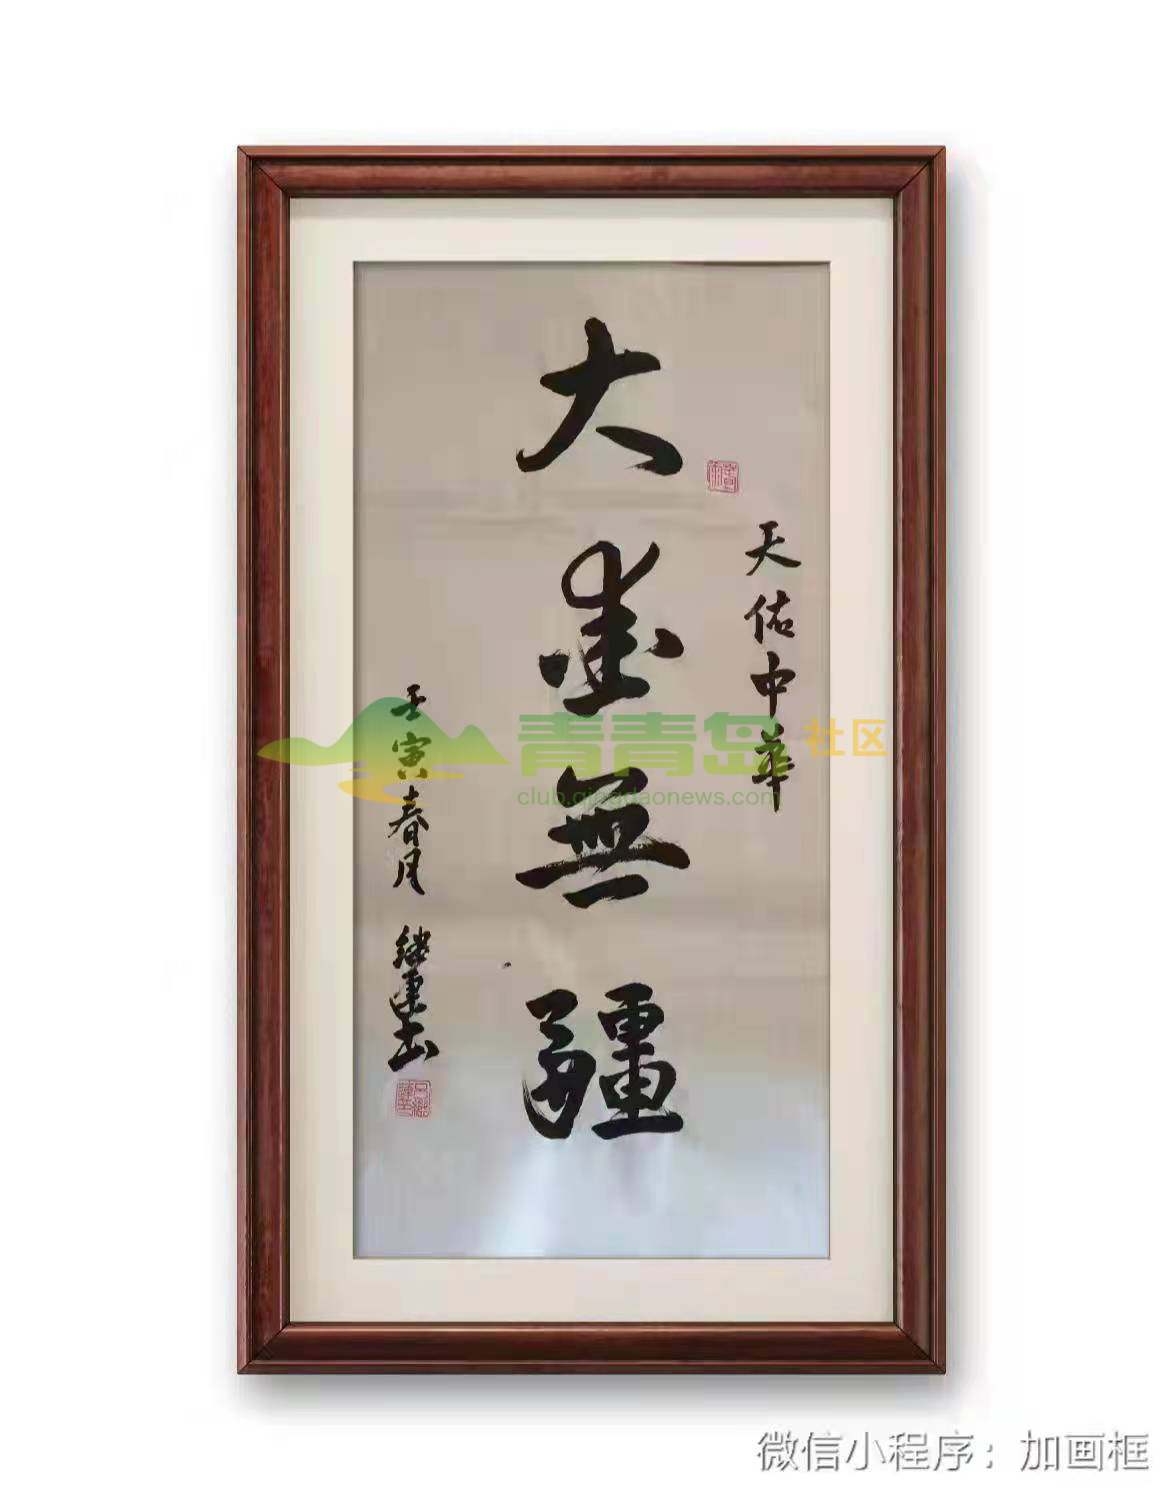 天佑中華
大愛無疆
壬寅春月
青青岛社区
club.qingdaonews.com
微信小程序：加画框